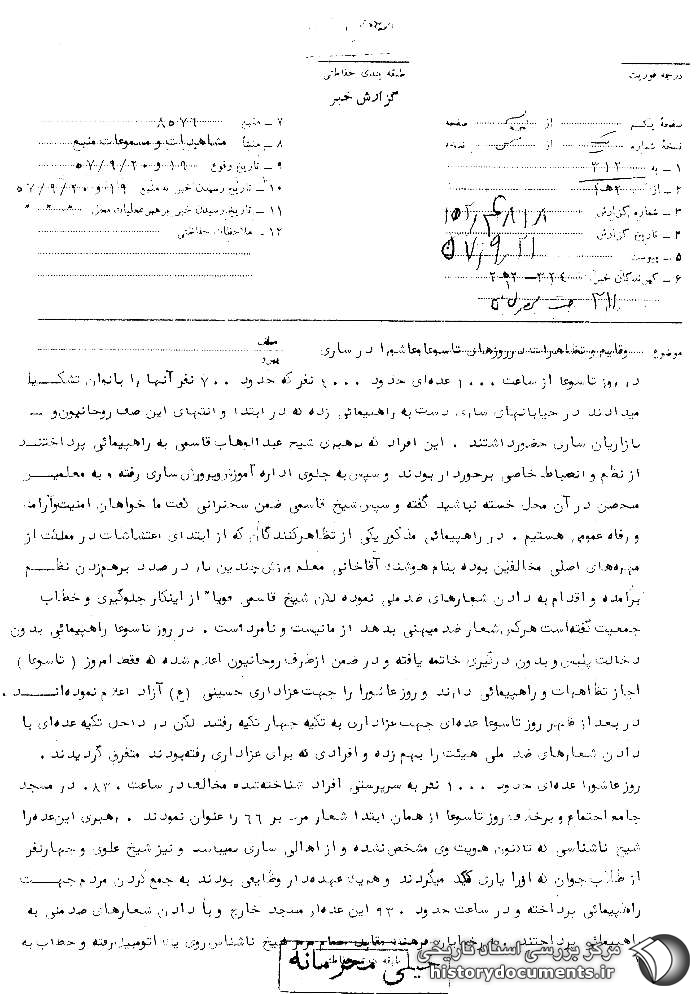 طبقه بندی حفاظتی
درجه فوریت
گزارش خبر
صفحه یکم از صفحه
نسخه شماره از نسخه
۱ ـ به ۳۱۲
۲ ـ از ۲هـ۲
۳ ـ شماره گزارش
۴ ـ تاریخ گزارش ۵۷٫۹٫۲۱
۵ ـ پیوست
۶ ـ گیرندگان خبر
۷ ـ منبع ۸۵۷۹
۸ ـ منشأ مشاهدات و مسموعات منبع
۹ ـ تاریخ وقوع ۱۹و۵۷/۹/۲۰
۱۰ ـ تاریخ رسیدن خبر به منبع ۱۹و۵۷/۹/۲۰
۱۱ ـ تاریخ رسیدن خبر به رهبر عملیات محل
۱۲ ـ ملاحظات حفاظتی
موضوع وقایع و تظاهرات در روزهای تاسوعا وعاشورا در ساری
در روز تاسوعا از ساعت ۱۰۰۰ عده‌ای حدود نفر که حدود ۷۰۰ نفر آنها را بانوان تشکیل
میدادند در خیابانهای ساری دست به راهپیمائی زده که در ابتدا و انتهای این صف روحانیون و
بازاریان ساری حضور داشتند . این افراد که برهبری شیخ عبدالوهاب قاسمی به راهپیمائی پرداختند
از نظم و انضباط خاصی برخوردار بودند و سپس به جلوی اداره آموزش وپرورش ساری رفته و به معلمین
متحصن در آن محل خسته نباشید گفته و سپس شیخ قاسمی ضمن سخنرانی گفت ما خواهان امنیت وآرامش
و رفاه عمومی هستیم . در راهپیمائی مذکور یکی از تظاهرکنندگان که از ابتدای اغتشاشات در مملکت از
مهره‌های اصلی مخالفین بوده بنام هوشنگ آقاخانی معلم ورزش چندین بار در صدد برهم زدن نظم
برآمده و اقدام به دادن شعارهای ضد ملی نموده لکن شیخ قاسمی قویا" از اینکار جلوگیری و خطاب به
جمعیت گفته است هرکس شعار ضد میهنی بدهد از ما نیست و نامرد است . در روز تاسوعا راهپیمائی بدون
دخالت پلیس و بدون درگیری خاتمه یافته و در ضمن از طرف روحانیون اعلام شده که فقط امروز ( تاسوعا )
اجازه تظاهرات و راهپیمائی دارند و روز عاشورا را جهت عزاداری حسینی (ع) آزاد اعلام نموده‌اند .
در بعد از ظهر روز تاسوعا عده‌ای جهت عزاداری به تکیه چهار تکیه رفتند لکن در داخل تکیه عده‌ای با
دادن شعارهای ضد ملی هیئت را بهم زده و افرادی که برای عزاداری رفته بودند متفرق گردیدند .
روز عاشورا عده‌ای حدود ۱۰۰۰ نفر به سرپرستی افراد شناخته شده مخالف در ساعت ۸۳۰ در مسجد
جامع اجتماع و برخلاف روز تاسوعا از همان ابتدا شعار مرگ بر ۶۶ را عنوان نمودند . رهبری این عده را
شیخ ناشناسی که تاکنون هویت وی مشخص نشده و از اهالی ساری نمیباشد و نیز شیخ علوی و چهار نفر
از طلاب جوان که او را یاری میکردند و همه عهده‌دار وظایفی بودند به جمع کردن مردم جهت
راهپیمائی پرداخته و در ساعت حدود ۹۳۰ این عده از مسجد خارج و با دادن شعارهای ضد ملی به
راهپیمائی پرداختند شیخ ناشناس روی اتومبیل رفته و خطاب به
خیلی محرمانه
مرکز بررسی اسناد تاریخی
historydocuments.ir